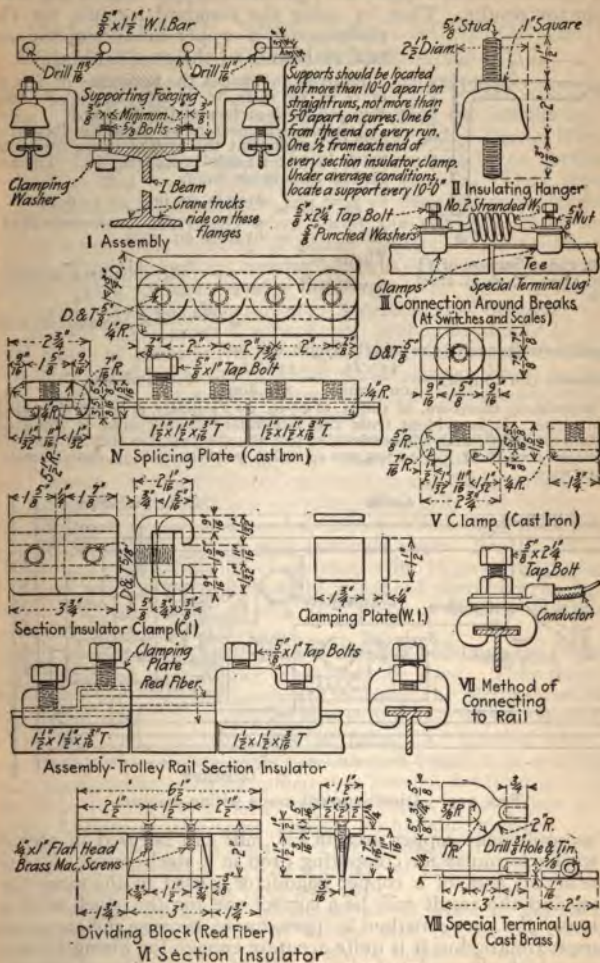 5/8" x 1 1/2" W.I. Bar
Drill 11/16"
Drill 11/16"
Supporting Forging
Minimum
5/8 Bolts
Clamping
Washer
I Beam
Crane trucks
ride on these
flanges
I Assembly
Supports should be located
not more than 10'-0" apart on
straight runs, not more than
5'-0" apart on curves. One 6"
from the end of every run.
One 1/2" from each end of
every section insulator clamp.
Under average conditions,
locate a support every 10'-0"
5/8" Stud
1" Square
2 1/2" Diam.
2"
II Insulating Hanger
5/8" x 2 1/4" Tap Bolt
No. 2 Stranded W.
5/8" Nut
5/8" Punched Washers
Tee
Clamps
Special Terminal Lug
III Connection Around Breaks
(At Switches and Scales)
1 3/4" D.
D. & T. 5/8"
1/4" R.
7/8" 2" 2" 2" 7/8"
7 3/4"
5/8" x 1" Tap Bolt
2 3/4"
9/16" 1 5/8" 9/16"
7/16" R.
1/4" R.
1/4" R.
1 1/2" x 1 1/2" x 3/16" T
1 1/2" x 1 1/2" x 3/16" T.
IV Splicing Plate (Cast Iron)
D&T 5/8"
7/8" 7/8"
9/16" 1 5/8" 9/16"
5/8" R.
7/16" R.
1/4" R.
1 3/4"
2 3/4"
V Clamp (Cast Iron)
1 5/8" 1/4" 1 7/8"
3 3/4"
2 1/16"
3/4" 1 5/16"
D & T 5/8"
Section Insulator Clamp (C.I.)
1 3/4"
1 1/2"
1/4"
Clamping Plate (W.I.)
5/8" x 2 1/4"
Tap Bolt
Conductor
VII Method of
Connecting
to Rail
Clamping
Plate
Red Fiber
5/8" x 1" Tap Bolts
1 1/2" x 1 1/2" x 3/16" T
1 1/2" x 1 1/2" x 3/16" T
Assembly-Trolley Rail Section Insulator
6 1/2"
2 1/2" 1 1/2" 2 1/2"
1/4" x 1" Flat Head
Brass Mac. Screws
2"
3/4" 1 1/2" 3/4"
1 3/4" 3" 1 3/4"
1 1/2"
3/16"
Dividing Block (Red Fiber)
VI Section Insulator
3/4"
5/8" 3/4" 5/8"
3/8" R
1" R.
2" R.
Drill 3/8" Hole & Tin
1/4"
1" 1" 1"
3"
1/16"
2"
VIII Special Terminal Lug
(Cast Brass)